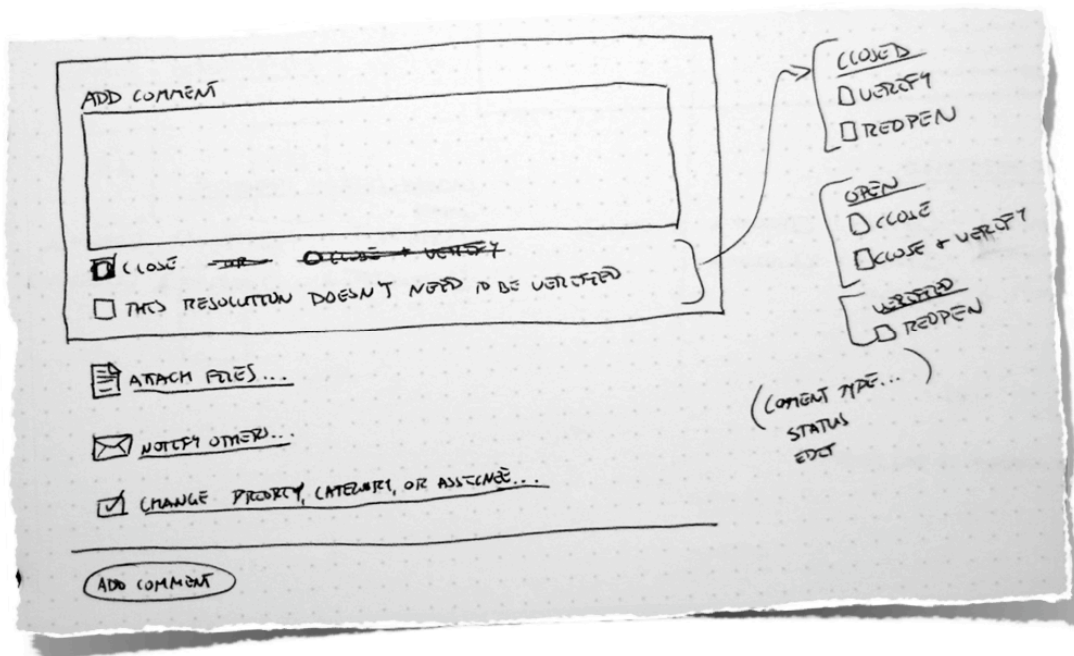 ADD COMMENT
CLOSE OR CLOSE + VERIFY
THIS RESOLUTION DOESN'T NEED TO BE VERIFIED
ATTACH FILES...
NOTIFY OTHERS...
CHANGE PRIORITY, CATEGORY, OR ASSIGNEE...
ADD COMMENT
CLOSED
VERIFY
REOPEN
OPEN
CLOSE
CLOSE + VERIFY
VERIFIED
REOPEN
(COMENT TYPE... )
STATUS
EDIT